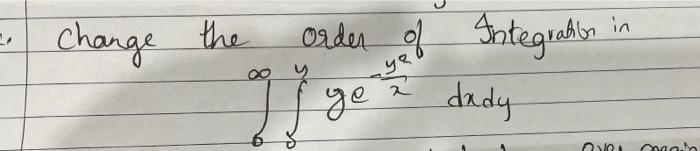 Change the order of Integration in
∞ y
∫ ∫ ye^(-y²/x) dxdy
0 0